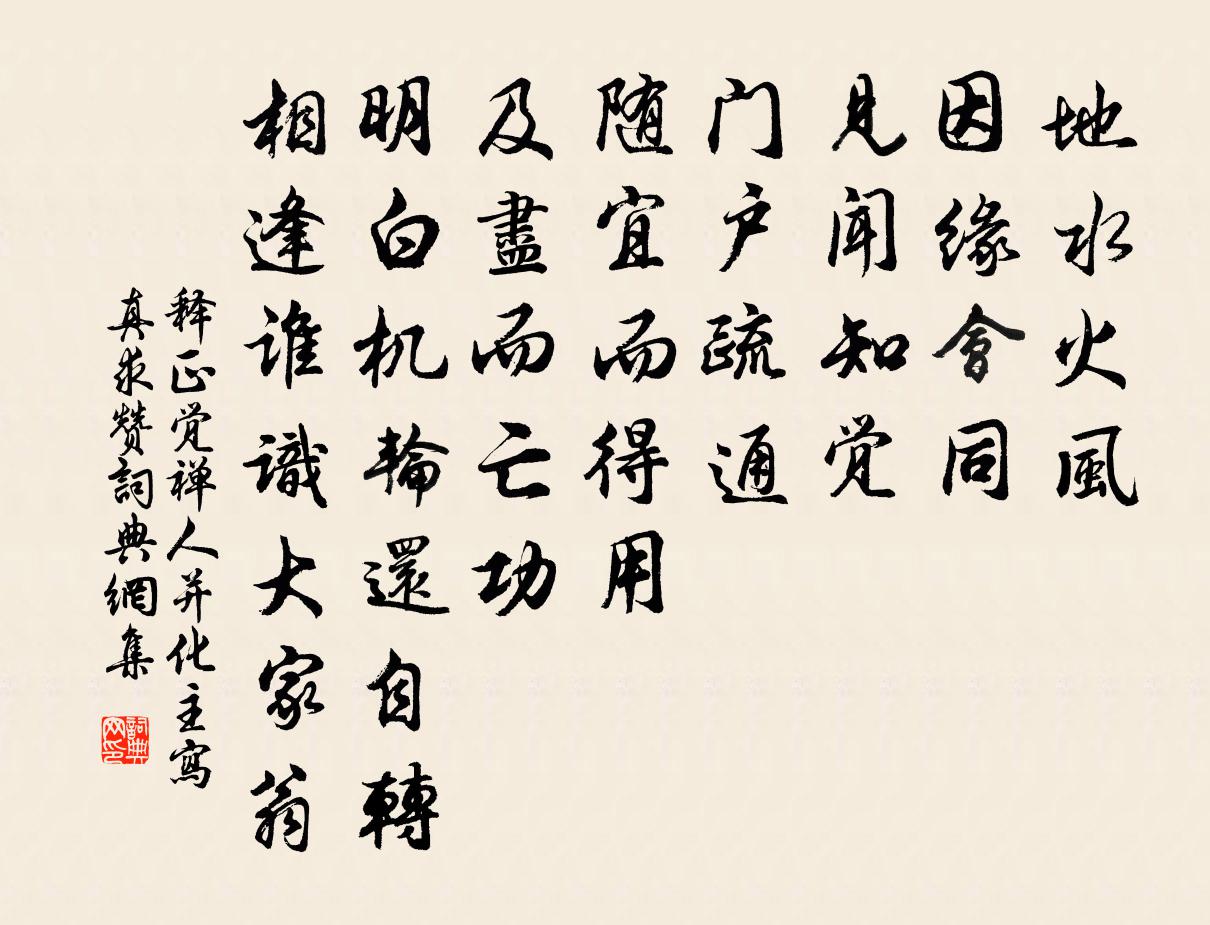 地水火風
因緣會同
見聞知觉
门户疏通
随宜而得用
及盡而亡功
明白机輪還自轉
相逢谁識大家翁
释正觉禅人并化主寫
真求赞詞典網集
詞典网印